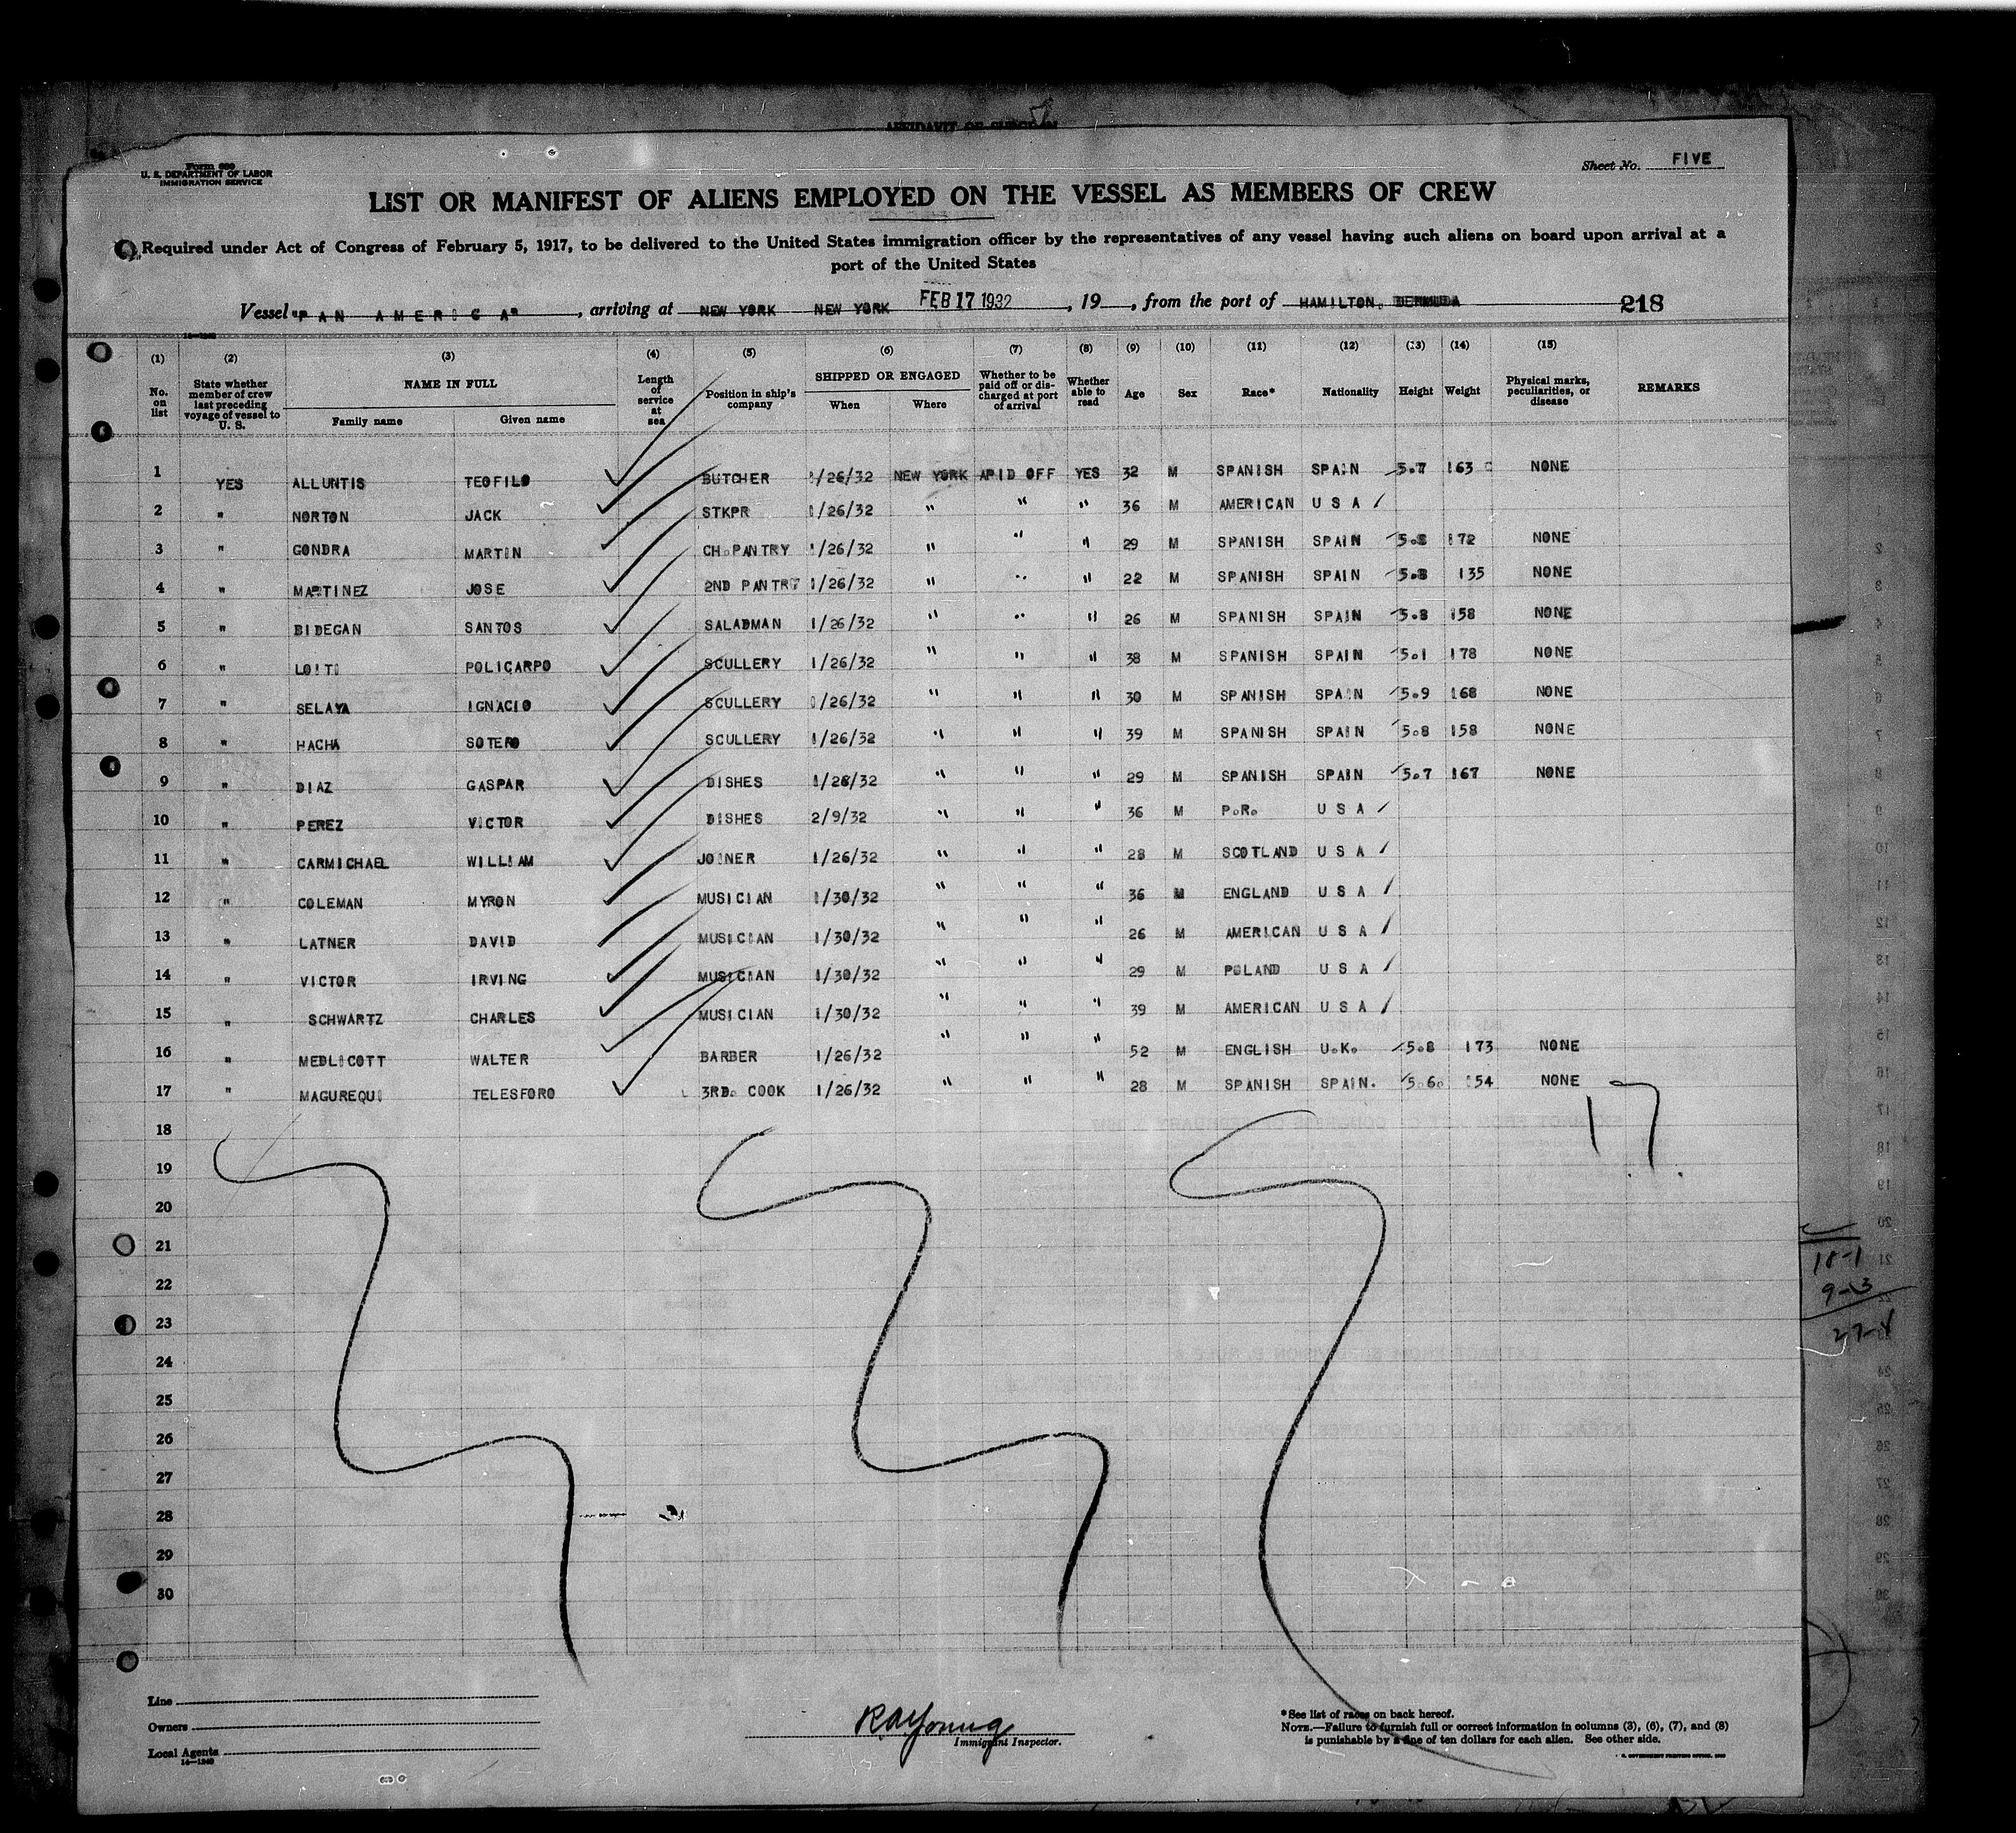 AFFIDAVIT OF SURGEON
Form 680
U. S. DEPARTMENT OF LABOR
IMMIGRATION SERVICE
Sheet No. FIVE
LIST OR MANIFEST OF ALIENS EMPLOYED ON THE VESSEL AS MEMBERS OF CREW
Required under Act of Congress of February 5, 1917, to be delivered to the United States immigration officer by the representatives of any vessel having such aliens on board upon arrival at a
port of the United States
Vessel "PAN AMERICA", arriving at NEW YORK NEW YORK FEB 17 1932, 19__, from the port of HAMILTON, BERMUDA 218
(1) (2) (3) (4) (5) (6) (7) (8) (9) (10) (11) (12) (13) (14) (15)
No. on list State whether member of crew last preceding voyage of vessel to U. S. NAME IN FULL Family name Given name Length of service at sea Position in ship's company SHIPPED OR ENGAGED When Where Whether to be paid off or discharged at port of arrival Whether able to read Age Sex Race* Nationality Height Weight Physical marks, peculiarities, or disease REMARKS
1 YES ALLUNTIS TEOFILO BUTCHER 1/26/32 NEW YORK APID OFF YES 32 M SPANISH SPAIN 5.7 163 NONE
2 " NORTON JACK STKPR 1/26/32 " " " 36 M AMERICAN U S A
3 " GONDRA MARTIN CH.PANTRY 1/26/32 " " " 29 M SPANISH SPAIN 5.8 172 NONE
4 " MARTINEZ JOSE 2ND PANTRY 1/26/32 " " " 22 M SPANISH SPAIN 5.8 135 NONE
5 " BIDEGAN SANTOS SALADMAN 1/26/32 " " " 26 M SPANISH SPAIN 5.8 158 NONE
6 " LOITI POLICARPO SCULLERY 1/26/32 " " " 38 M SPANISH SPAIN 5.1 178 NONE
7 " SELAYA IGNACIO SCULLERY 1/26/32 " " " 30 M SPANISH SPAIN 5.9 168 NONE
8 " HACHA SOTERO SCULLERY 1/26/32 " " " 39 M SPANISH SPAIN 5.8 158 NONE
9 " DIAZ GASPAR DISHES 1/28/32 " " " 29 M SPANISH SPAIN 5.7 167 NONE
10 " PEREZ VICTOR DISHES 2/9/32 " " " 36 M P.R. U S A
11 " CARMICHAEL WILLIAM JOINER 1/26/32 " " " 28 M SCOTLAND U S A
12 " COLEMAN MYRON MUSICIAN 1/30/32 " " " 36 M ENGLAND U S A
13 " LATNER DAVID MUSICIAN 1/30/32 " " " 26 M AMERICAN U S A
14 " VICTOR IRVING MUSICIAN 1/30/32 " " " 29 M POLAND U S A
15 " SCHWARTZ CHARLES MUSICIAN 1/30/32 " " " 39 M AMERICAN U S A
16 " MEDLICOTT WALTER BARBER 1/26/32 " " " 52 M ENGLISH U.K. 5.8 173 NONE
17 " MAGUREQUI TELESFORO 3RD. COOK 1/26/32 " " " 28 M SPANISH SPAIN. 5.6. 154 NONE
17
18
19
20
21
22
23
24
25
26
27
28
29
30
18-1
9-3
27-4
Line
Owners
Local Agents
14—1240
RAYoung
Immigrant Inspector.
*See list of races on back hereof.
NOTE.—Failure to furnish full or correct information in columns (3), (6), (7), and (8)
is punishable by a fine of ten dollars for each alien. See other side.